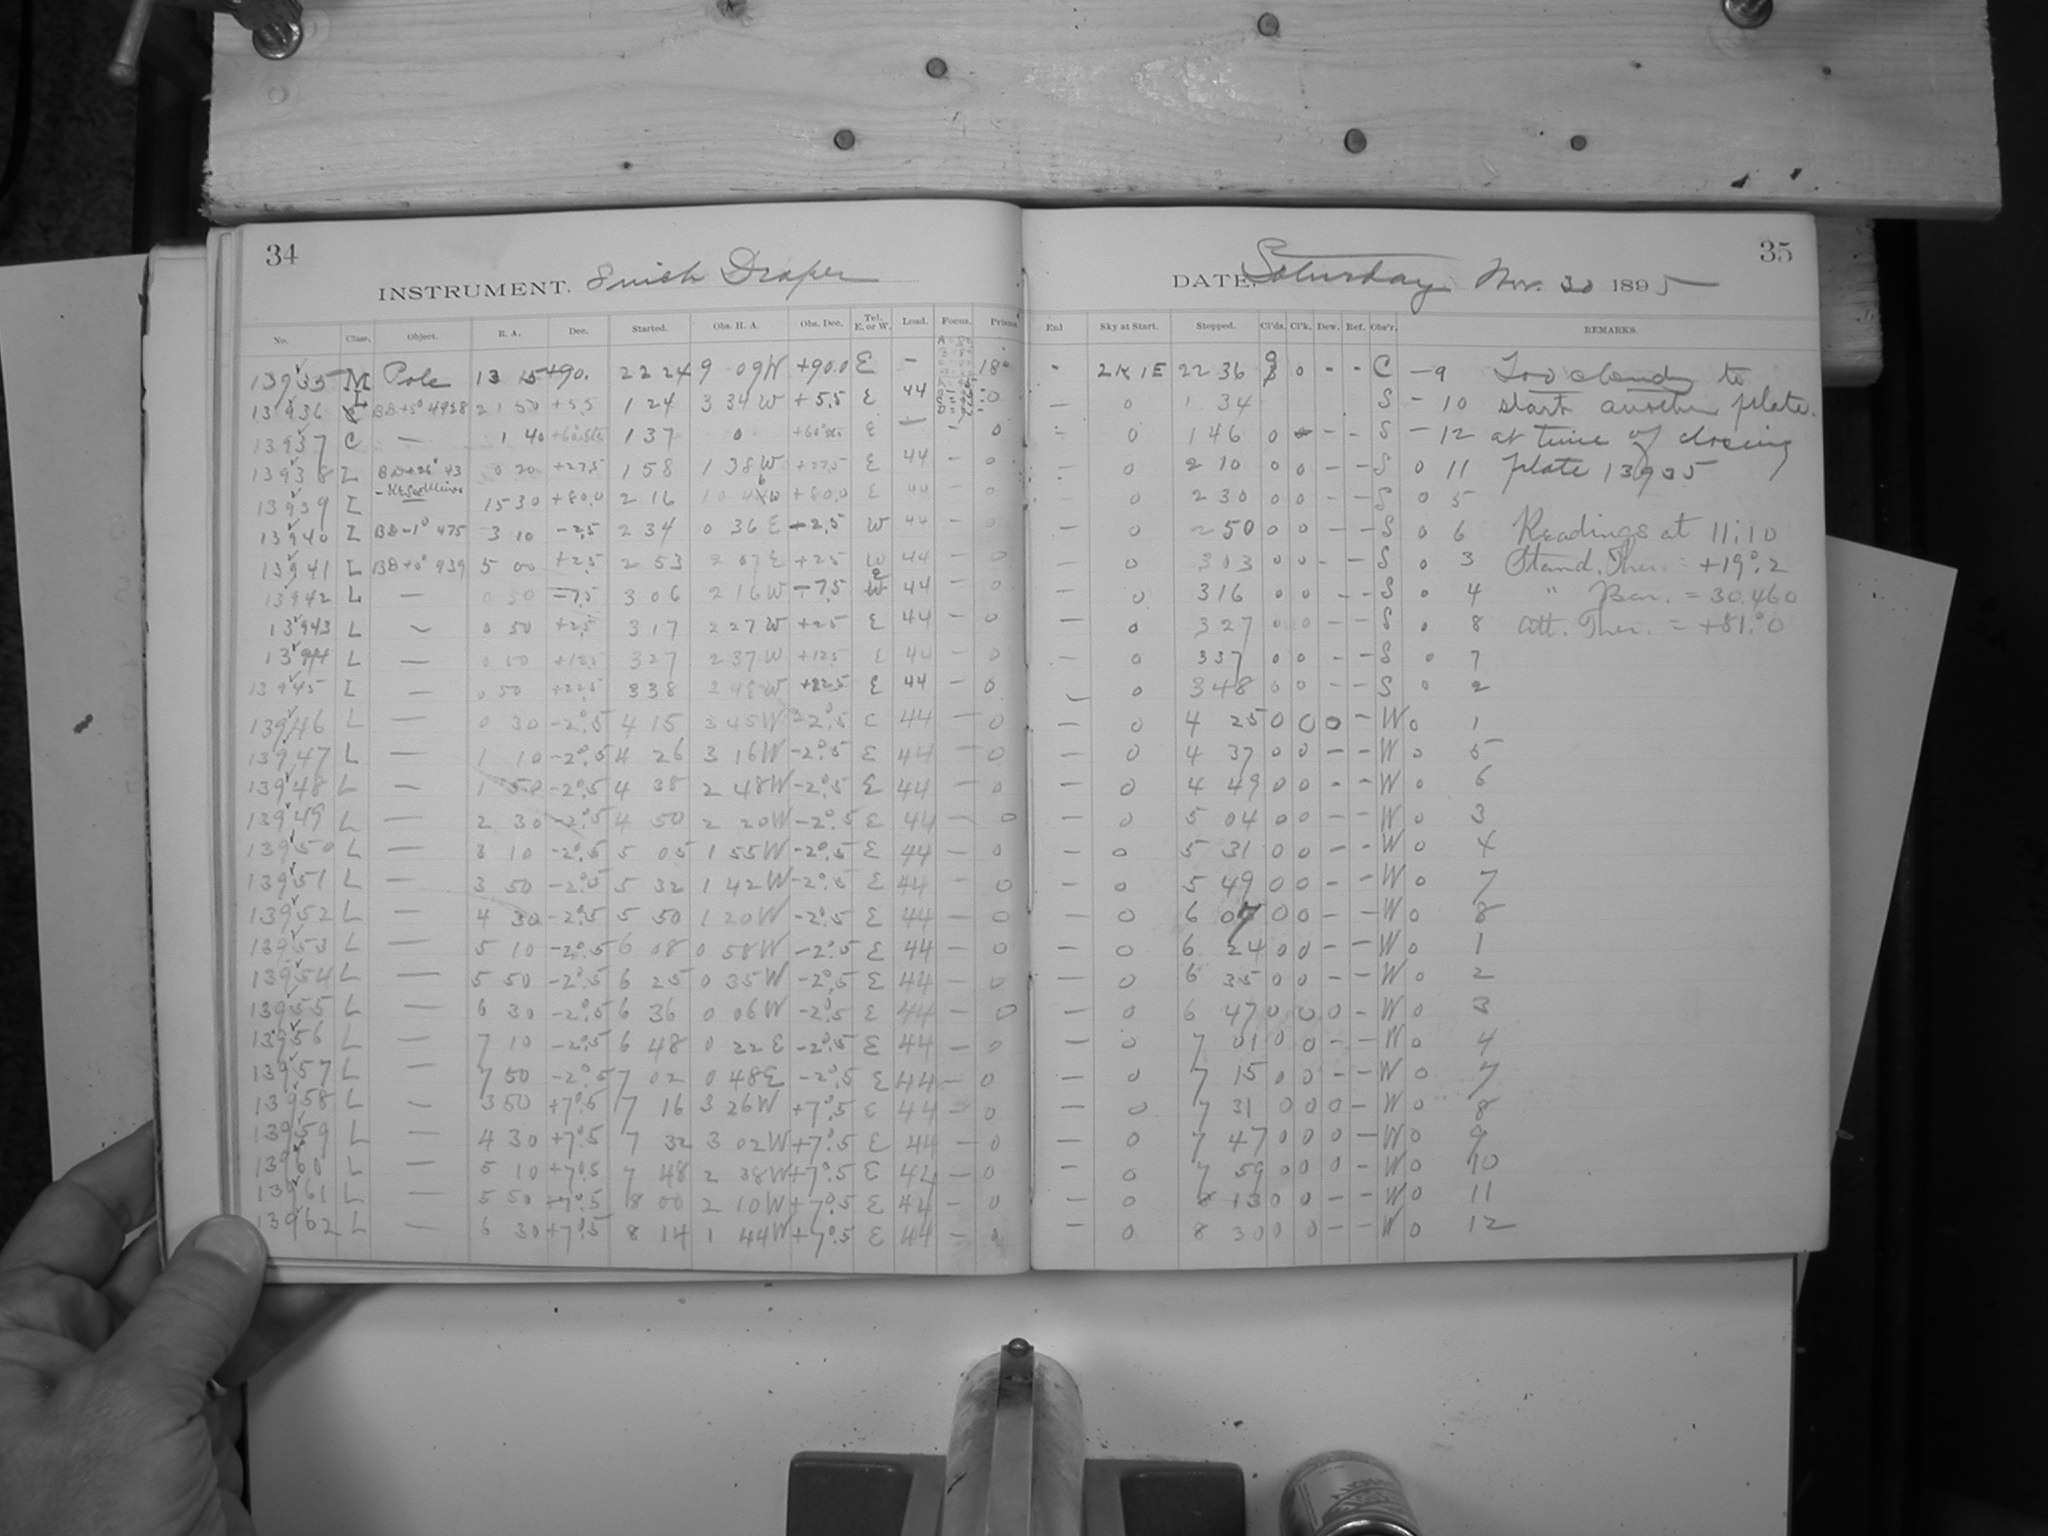 34
INSTRUMENT. 8 inch Draper
No. Class. Object. R. A. Dec. Started. Obs. H. A. Obs. Dec. Tel. E. or W. Load. Focus. Prisms.
13935 M Pole 13 15 +90. 22 24 9 09W +90.0 E — 18°
13936 L BD+5° 4928 21 50 +5.5 1 24 3 34 W +5.5 E 44 0
13937 C — 1 40 +60° 1 37 0 +60° E — – 0
13938 L BD+26° 43 0 20 +27.5 1 58 1 38 W +27.5 E 44 – 0
13939 L 15 30 +80.0 2 16 10 46 W +80.0 E 44 – 0
13940 L BD-1° 475 3 10 -2.5 2 34 0 36 E -2.5 W 44 – 0
13941 L BD+0° 939 5 00 +2.5 2 53 2 07 E +2.5 W 44 – 0
13942 L — 0 50 -7.5 3 06 2 16 W -7.5 E 44 – 0
13943 L — 0 50 +2.5 3 17 2 27 W +2.5 E 44 – 0
13944 L — 0 50 +12.5 3 27 2 37 W +12.5 E 44 – 0
13945 L — 0 50 +22.5 3 38 2 48 W +22.5 E 44 – 0
13946 L — 0 30 -2°.5 4 15 3 45W -2°.5 E 44 — 0
13947 L — 1 10 -2°.5 4 26 3 16W -2°.5 E 44 — 0
13948 L — 1 50 -2°.5 4 38 2 48W -2°.5 E 44 — 0
13949 L — 2 30 -2°.5 4 50 2 20W -2°.5 E 44 — 0
13950 L — 3 10 -2°.5 5 05 1 55W -2°.5 E 44 — 0
13951 L — 3 50 -2°.5 5 32 1 42W -2°.5 E 44 — 0
13952 L — 4 30 -2°.5 5 50 1 20W -2°.5 E 44 — 0
13953 L — 5 10 -2°.5 6 08 0 58W -2°.5 E 44 — 0
13954 L — 5 50 -2°.5 6 25 0 35W -2°.5 E 44 — 0
13955 L — 6 30 -2°.5 6 36 0 06W -2°.5 E 44 — 0
13956 L — 7 10 -2°.5 6 48 0 22E -2°.5 E 44 — 0
13957 L — 7 50 -2°.5 7 02 0 48E -2°.5 E 44 — 0
13958 L — 3 50 +7°.5 7 16 3 26W +7°.5 E 44 — 0
13959 L — 4 30 +7°.5 7 32 3 02W +7°.5 E 44 — 0
13960 L — 5 10 +7°.5 7 48 2 38W +7°.5 E 44 — 0
13961 L — 5 50 +7°.5 8 00 2 10W +7°.5 E 44 — 0
13962 L — 6 30 +7°.5 8 14 1 44W +7°.5 E 44 — 0
35
DATE, Saturday Nov. 30 1895
Enl Sky at Start. Stopped. Cl'ds. Cl'k. Dew. Ref. Obs'r. REMARKS.
- 2K1E 22 36 9 0 - - C — 9 Too cloudy to
— 0 1 34 S — 10 start another plate
— 0 1 46 0 - - - S — 12 at time of closing
— 0 2 10 0 0 - - S 0 11 plate 13935
— 0 2 30 0 0 - - S 0 5
— 0 2 50 0 0 - - S 0 6 Readings at 11:10
— 0 3 03 0 0 - - S 0 3 Stand. Ther. = +19°.2
— 0 3 16 0 0 - - S 0 4 " Bar. = 30.460
— 0 3 27 0 0 - - S 0 8 Att. Ther. = +81.°0
— 0 3 37 0 0 - - S 0 7
— 0 3 48 0 0 - - S 0 2
— 0 4 25 0 0 0 - W 0 1
— 0 4 37 0 0 - - W 0 5
— 0 4 49 0 0 - - W 0 6
— 0 5 04 0 0 - - W 0 3
— 0 5 31 0 0 - - W 0 4
— 0 5 49 0 0 - - W 0 7
— 0 6 07 0 0 - - W 0 8
— 0 6 24 0 0 - - W 0 1
— 0 6 35 0 0 - - W 0 2
— 0 6 47 0 0 0 - W 0 3
— 0 7 01 0 0 - - W 0 4
— 0 7 15 0 0 - - W 0 7
— 0 7 31 0 0 0 - W 0 8
— 0 7 47 0 0 0 - W 0 9
— 0 7 59 0 0 0 - W 0 10
— 0 8 13 0 0 - - W 0 11
— 0 8 30 0 0 - - W 0 12